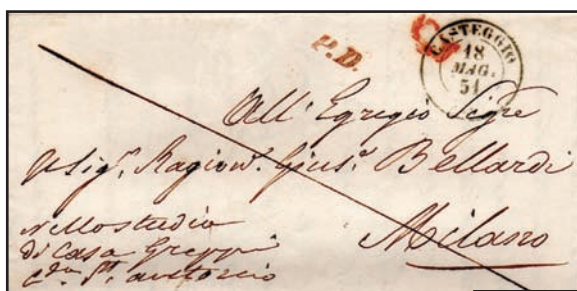 P.D.
CASTEGGIO
18
MAG.
51
All' Egregio Sigre
Sigr. Ragion. Gius. Bellardi
nello studio
di casa Greppi
Milano
St. Antonio